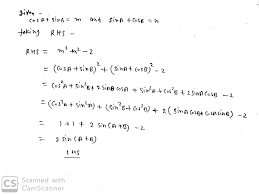 given -
cosA + sinB = m and sinA + cosB = n
taking RHS -
RHS = m² + n² - 2
= (cosA + sinB)² + (sinA + cosB)² - 2
= cos²A + sin²B + 2 sinB cosA + sin²A + cos²B + 2 sinA cosB - 2
= (cos²A + sin²A) + (sin²B + cos²B) + 2 (sinA cosB + cosA sinB) - 2
= 1 + 1 + 2 sin(A+B) - 2
= 2 sin(A+B)
LHS
CS Scanned with
CamScanner